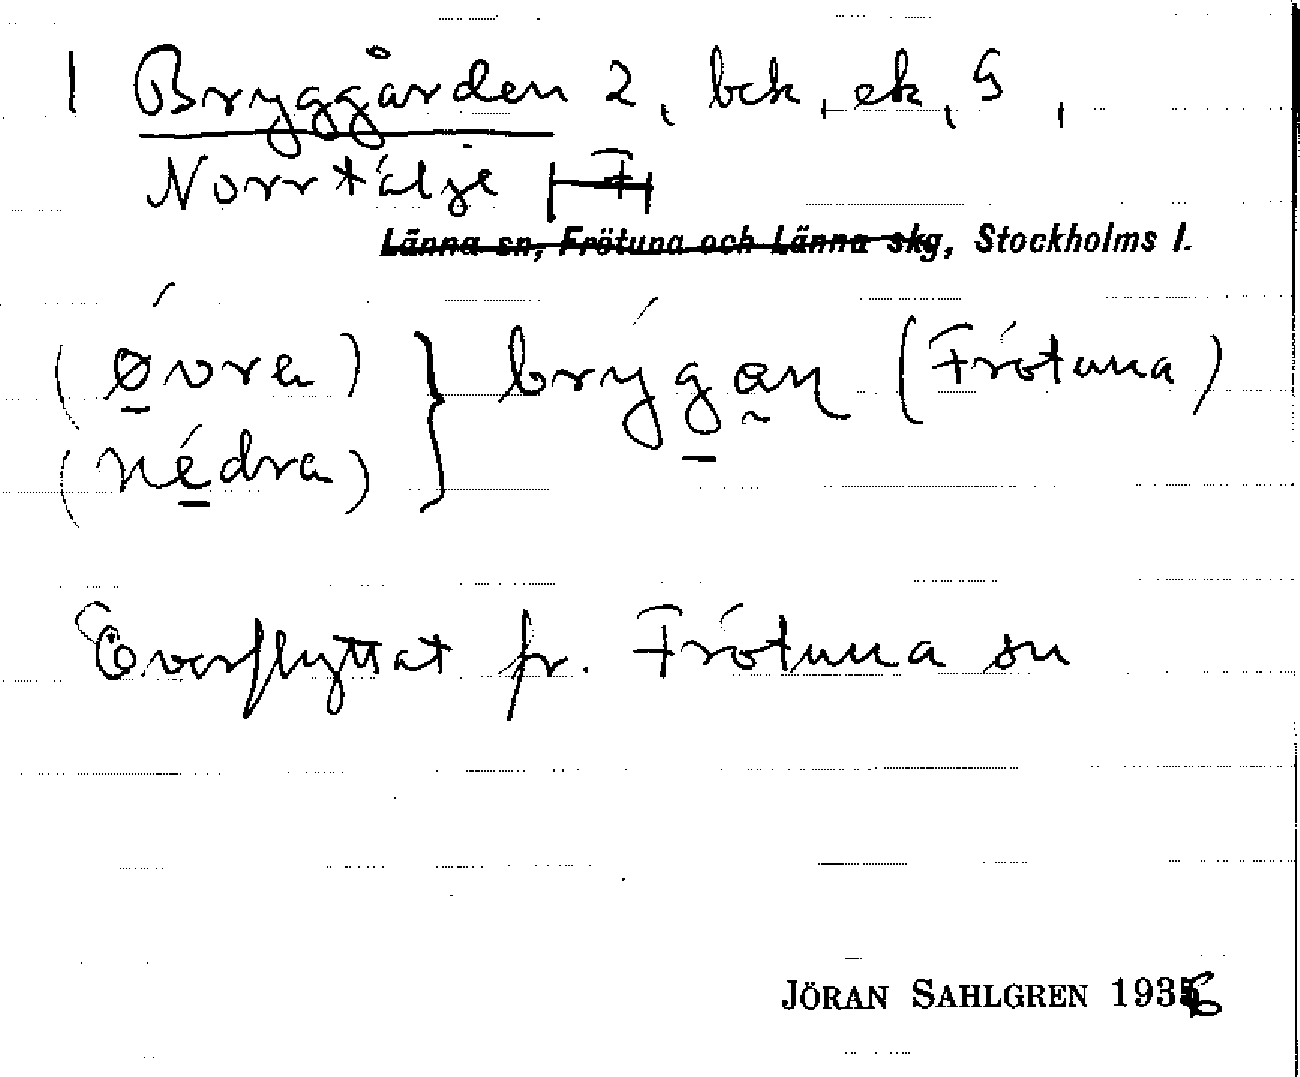 1 Bryggården 2, bck, ek, G,
Norrtälje
Länna sn, Frötuna och Länna skg, Stockholms l.
(ǿvra) } brýgan (Frötuna)
(nédra)
Överflyttat fr. Frötuna sn
JÖRAN SAHLGREN 1936